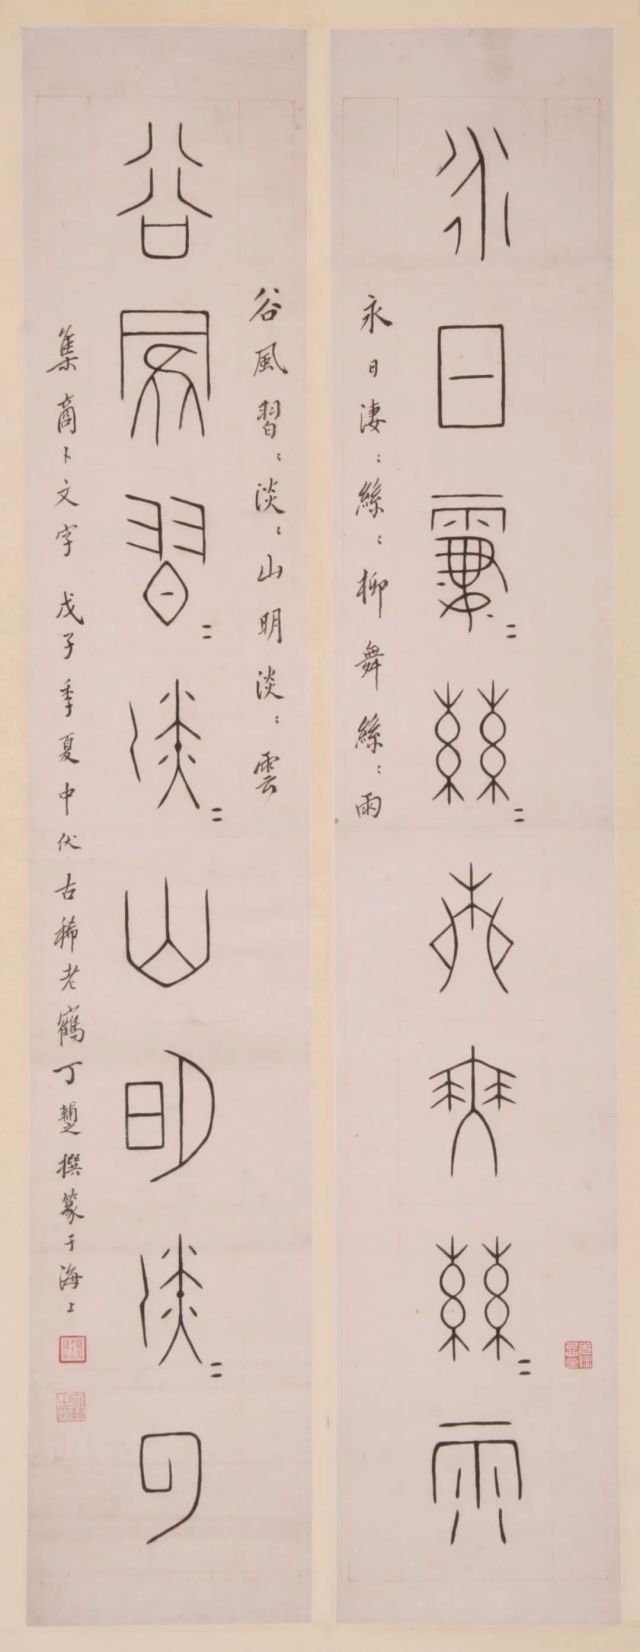 永日淒〻絲〻柳舞絲〻雨
永日淒〻絲〻柳舞絲〻雨
谷風習〻淡〻山明淡〻雲
谷風習〻淡〻山明淡〻雲
集商卜文字 戊子季夏中伏古稀老鶴丁輔之撰篆于海上